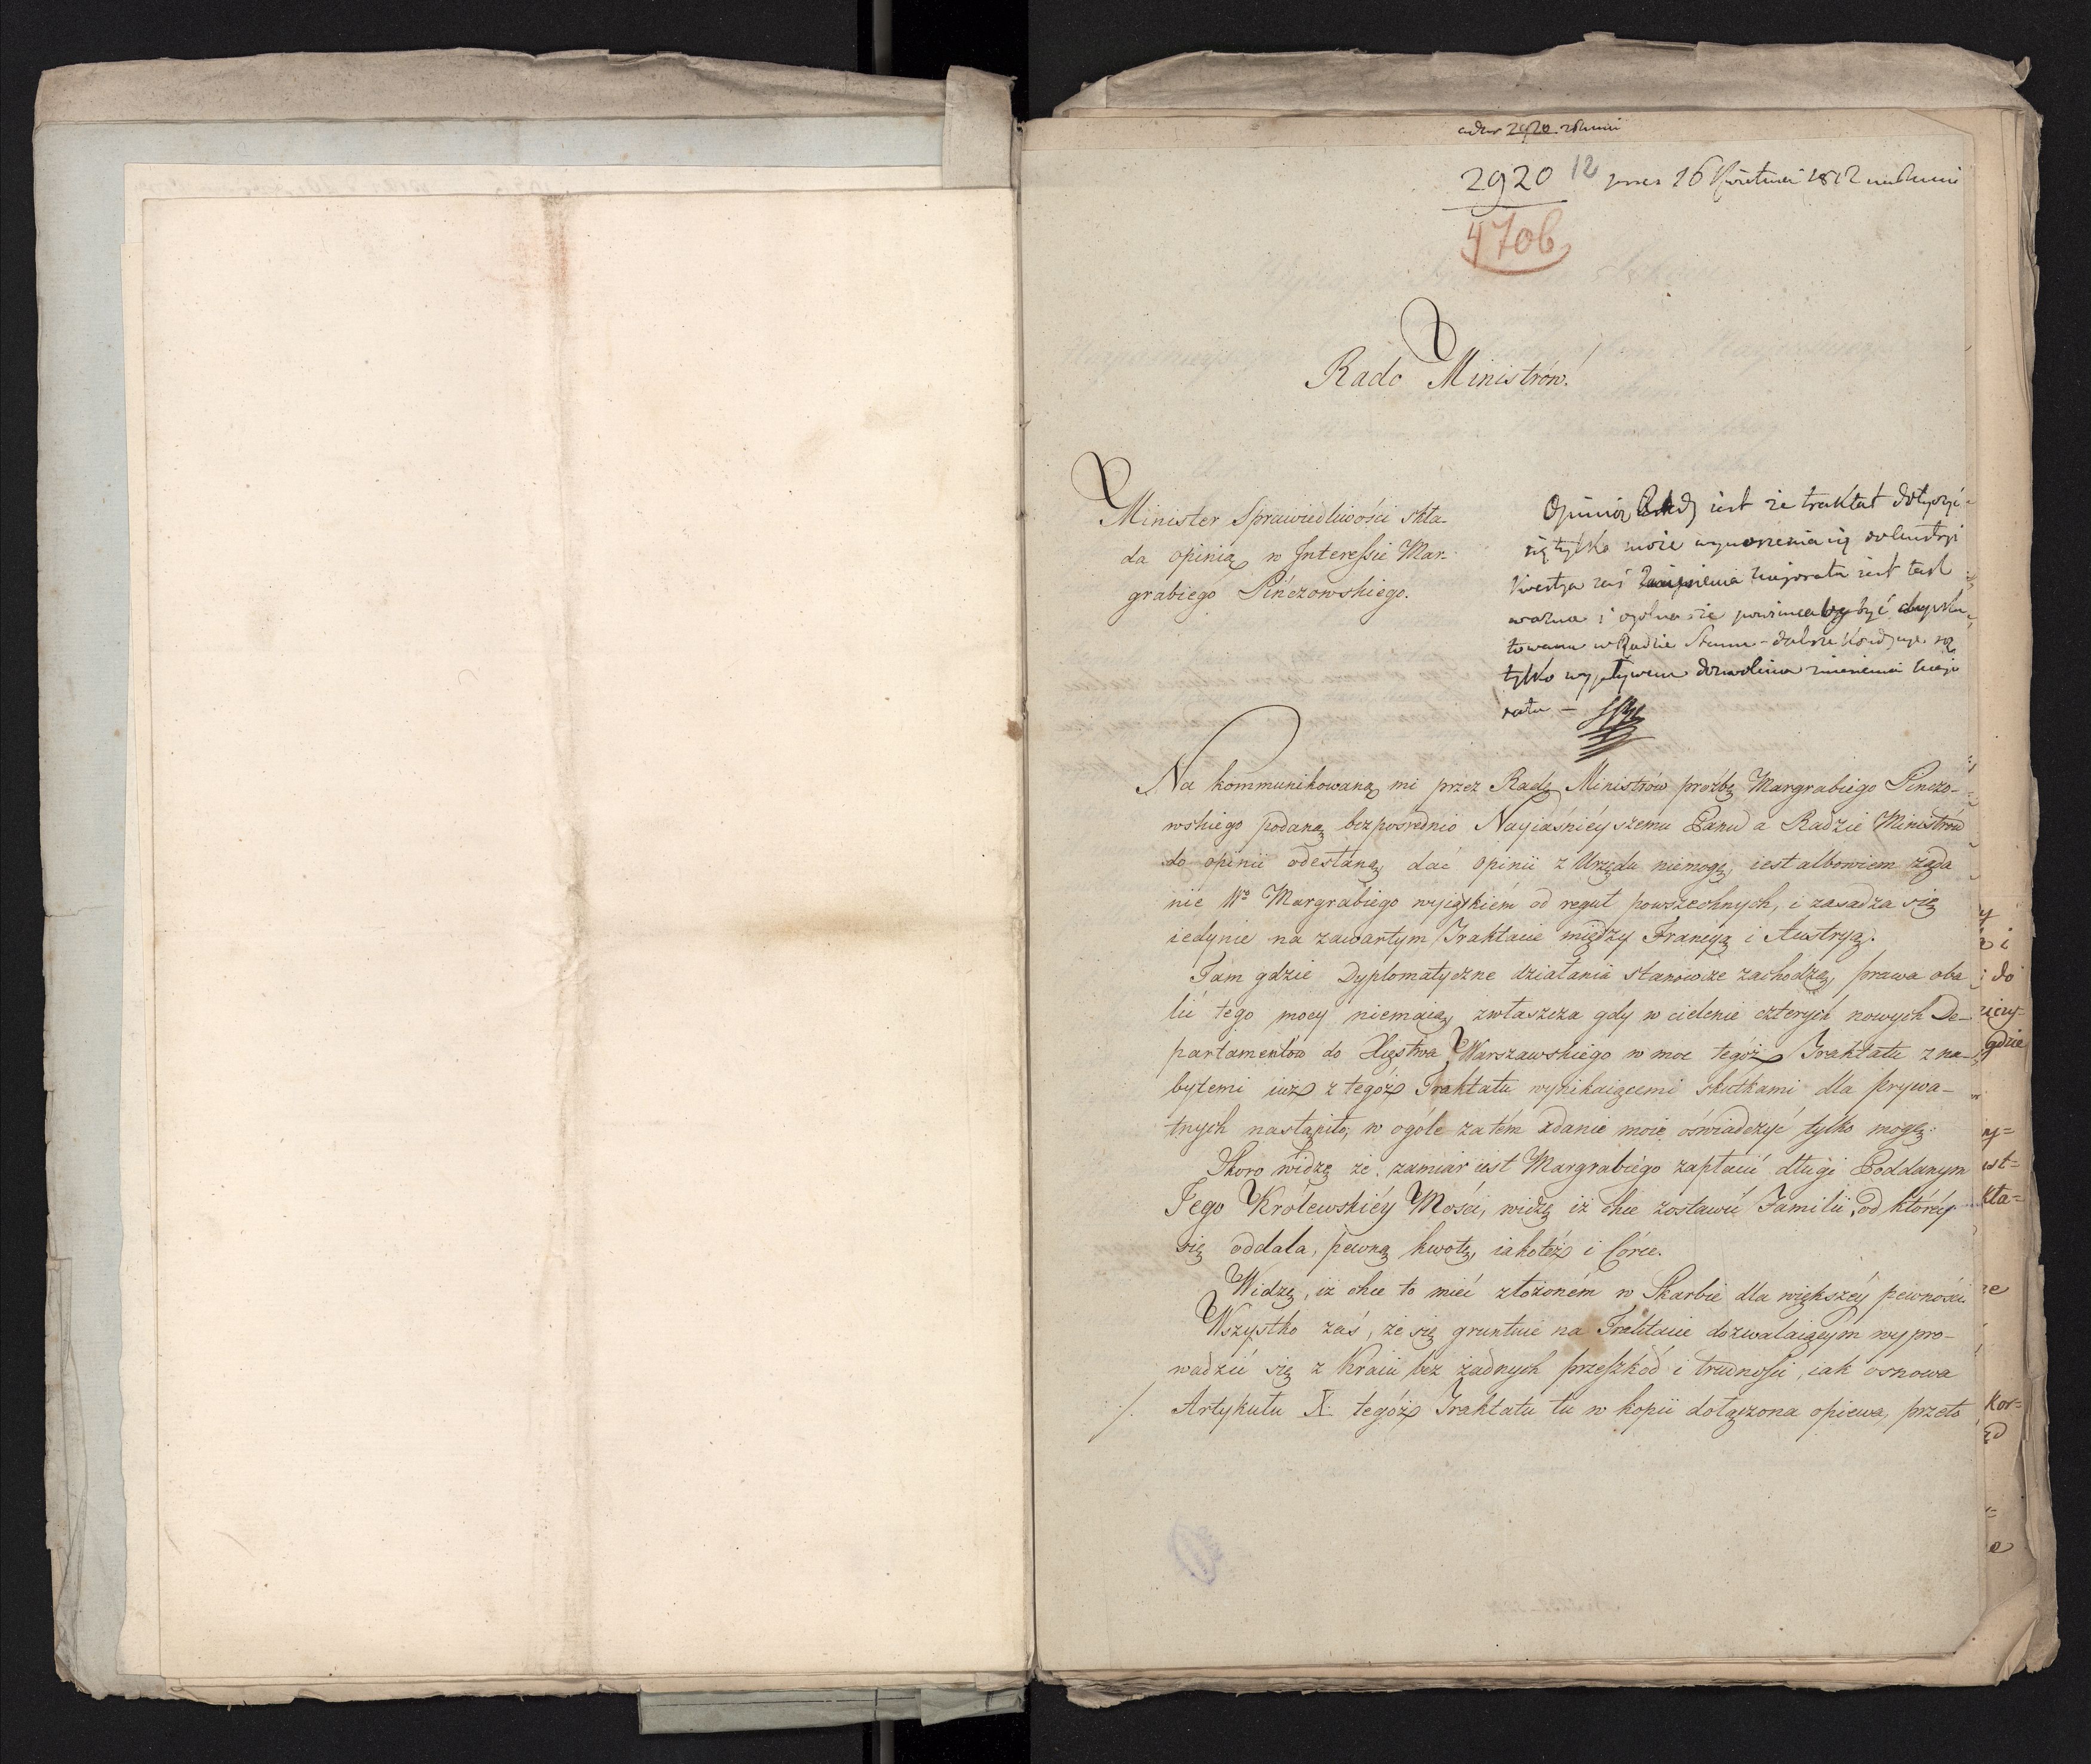 2920
12
16 Kwietnia 1812
4706
Rado Ministrów!
Minister Sprawiedliwości skła-
da opinią w Interessie Mar-
grabiego Pińczowskiego.
Opinią Rady iest że traktat dotyczyć
się tylko może wynoszenia się
kwestya zaś zniesienia Majoratu iest tak
ważna i ogólna że powinna by być dysku-
towana w Radzie Stanu - dalsze są
tylko wypływem dozwolenia zniesienia Majo
ratu -
Na kommunikowaną mi przez Radę Ministrów proźbę Margrabiego Pinczo-
wskiego podaną bezpośrednio Nayiaśnieyszemu Panu a Radzie Ministrów
do opinii odesłaną, dać opinii z Urzędu niemogę, iest albowiem żąda
nie Wo Margrabiego wyiątkiem od reguł powszechnych, i zasadza się
iedynie na zawartym Traktacie między Francyą i Austryą.
Tam gdzie Dyplomatyczne działania stanowcze zachodzą, prawa oba
lić tego mocy niemaią, zwłaszcza gdy wcielenie czterych nowych De-
partamentow do Xięstwa Warszawskiego w moc tegoż Traktatu z na-
bytemi iuż z tegóż Traktatu wynikaiącemi skutkami dla prywa-
tnych nastąpiło, w ogóle zatém zdanie moie oświadczyć tylko mogę:
Skoro widzę że zamiar iest Margrabiego zapłacić długi Poddanym
Jego Królewskiéy Mości, widzę iż chce zostawić Familii, od któréy
się oddala, pewną kwotę, iakoteż i Córce.
Widzę, iż chce to mieć złożoném w Skarbie dla większéy pewności.
Wszystko zaś, że się gruntuie na Traktacie dozwalaiącym wypro-
wadzić się z Kraiu bez żadnych przeszkód i trudności, iak osnowa
./. Artykułu X. tegóż Traktatu tu w kopii dołączona opiewa, przeto